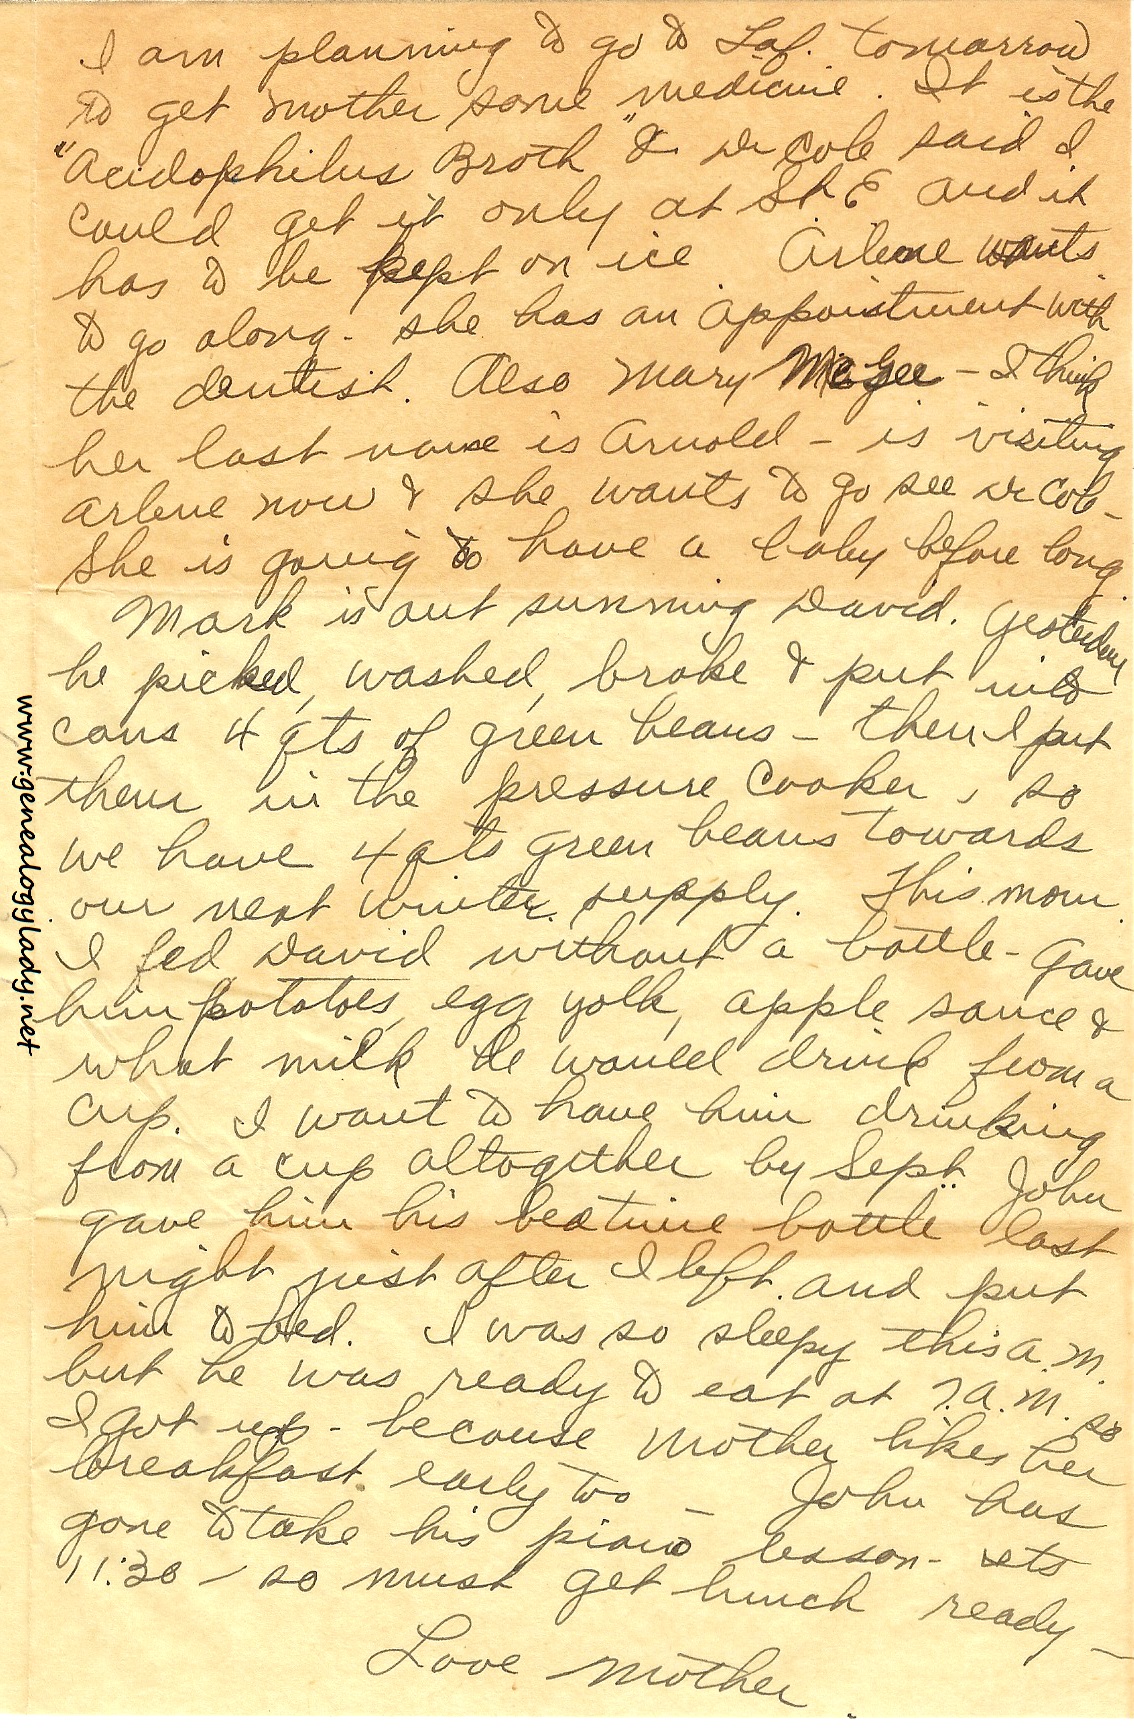 I am planning to go to Laf. tomorrow
to get mother some medicine. It is the
"Acidophilus Broth" & Dr Cole said I
could get it only at St E and it
has to be kept on ice Arlene wants
to go along - she has an appointment with
the dentist. Also Mary McGee - I think
her last name is Arnold - is visiting
Arlene now & she wants to go see Dr Cole -
She is going to have a baby before long.
Mark is out sunning David. Yesterday
he picked, washed, broke & put into
cans 4 qts of green beans - then I put
them in the pressure cooker, so
we have 4 qts green beans towards
our next winter supply. This morn.
I fed David without a bottle - Gave
him potatoes, egg yolk, apple sauce &
what milk he would drink from a
cup. I want to have him drinking
from a cup altogether by Sept. John
gave him his bedtime bottle last
night just after I left and put
him to bed. I was so sleepy this a.m.
but he was ready to eat at 7. a.m. so
I got up - because Mother likes her
breakfast early too - John has
gone to take his piano lesson - its
11:30 - so must get lunch ready -
Love Mother.
www.genealogylady.net